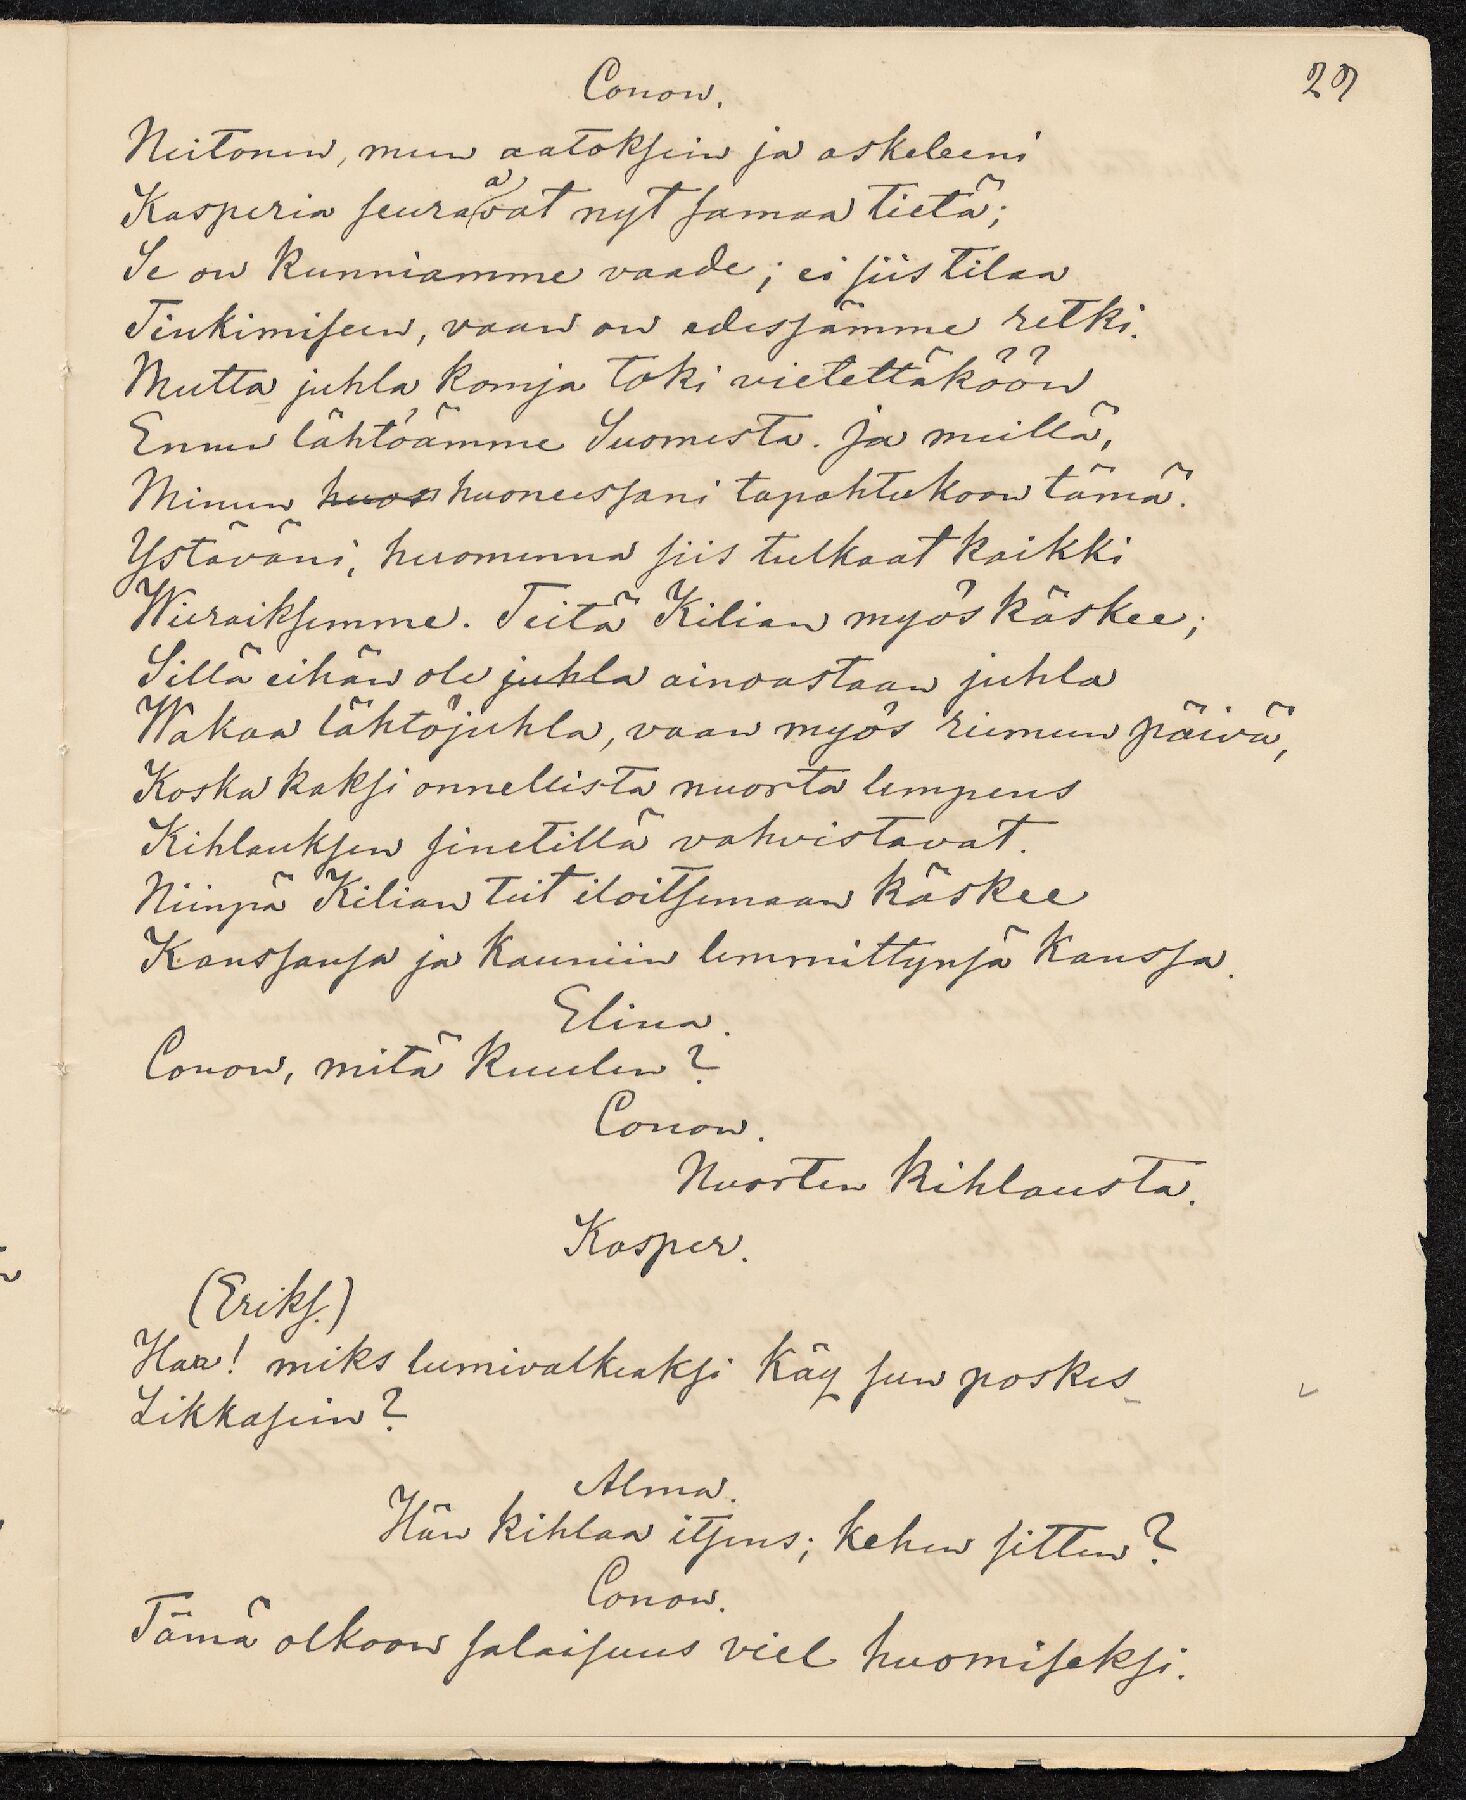 29
Conon.
Neitonen, mun aatoksein ja askeleeni
Kasperia seuraavat nyt samaa tietä;
Se on kunniamme vaade; ei siis tilaa
Tinkimiseen, vaan on edessämme retki.
Mutta juhla komja toki vietettäköön
Ennen lähtöämme Suomesta. Ja meillä,
Minun huon huoneessani tapahtukoon tämä.
Ystäväni, huomenna siis tulkaat kaikki
Wieraiksemme. Teitä Kilian myös käskee;
Sillä eihän ole juhla ainoastaan juhla
Wakaa lähtöjuhla, vaan myös riemun päivä,
Koska kaksi onnellista nuorta lempens
Kihlauksen sinetillä vahvistavat.
Niinpä Kilian teit iloitsemaan käskee
Kanssansa ja kauniin lemmittynsä kanssa.
Elina.
Conon, mitä kuulen?
Conon.
Nuorten kihlausta.
Kasper.
(Eriks.)
Haa! miks lumivalkeaksi käy sun poskes
Likkasein?
Alma.
Hän kihlaa itsens; kehen sitten?
Conon.
Tämä olkoon salaisuus viel huomiseksi.